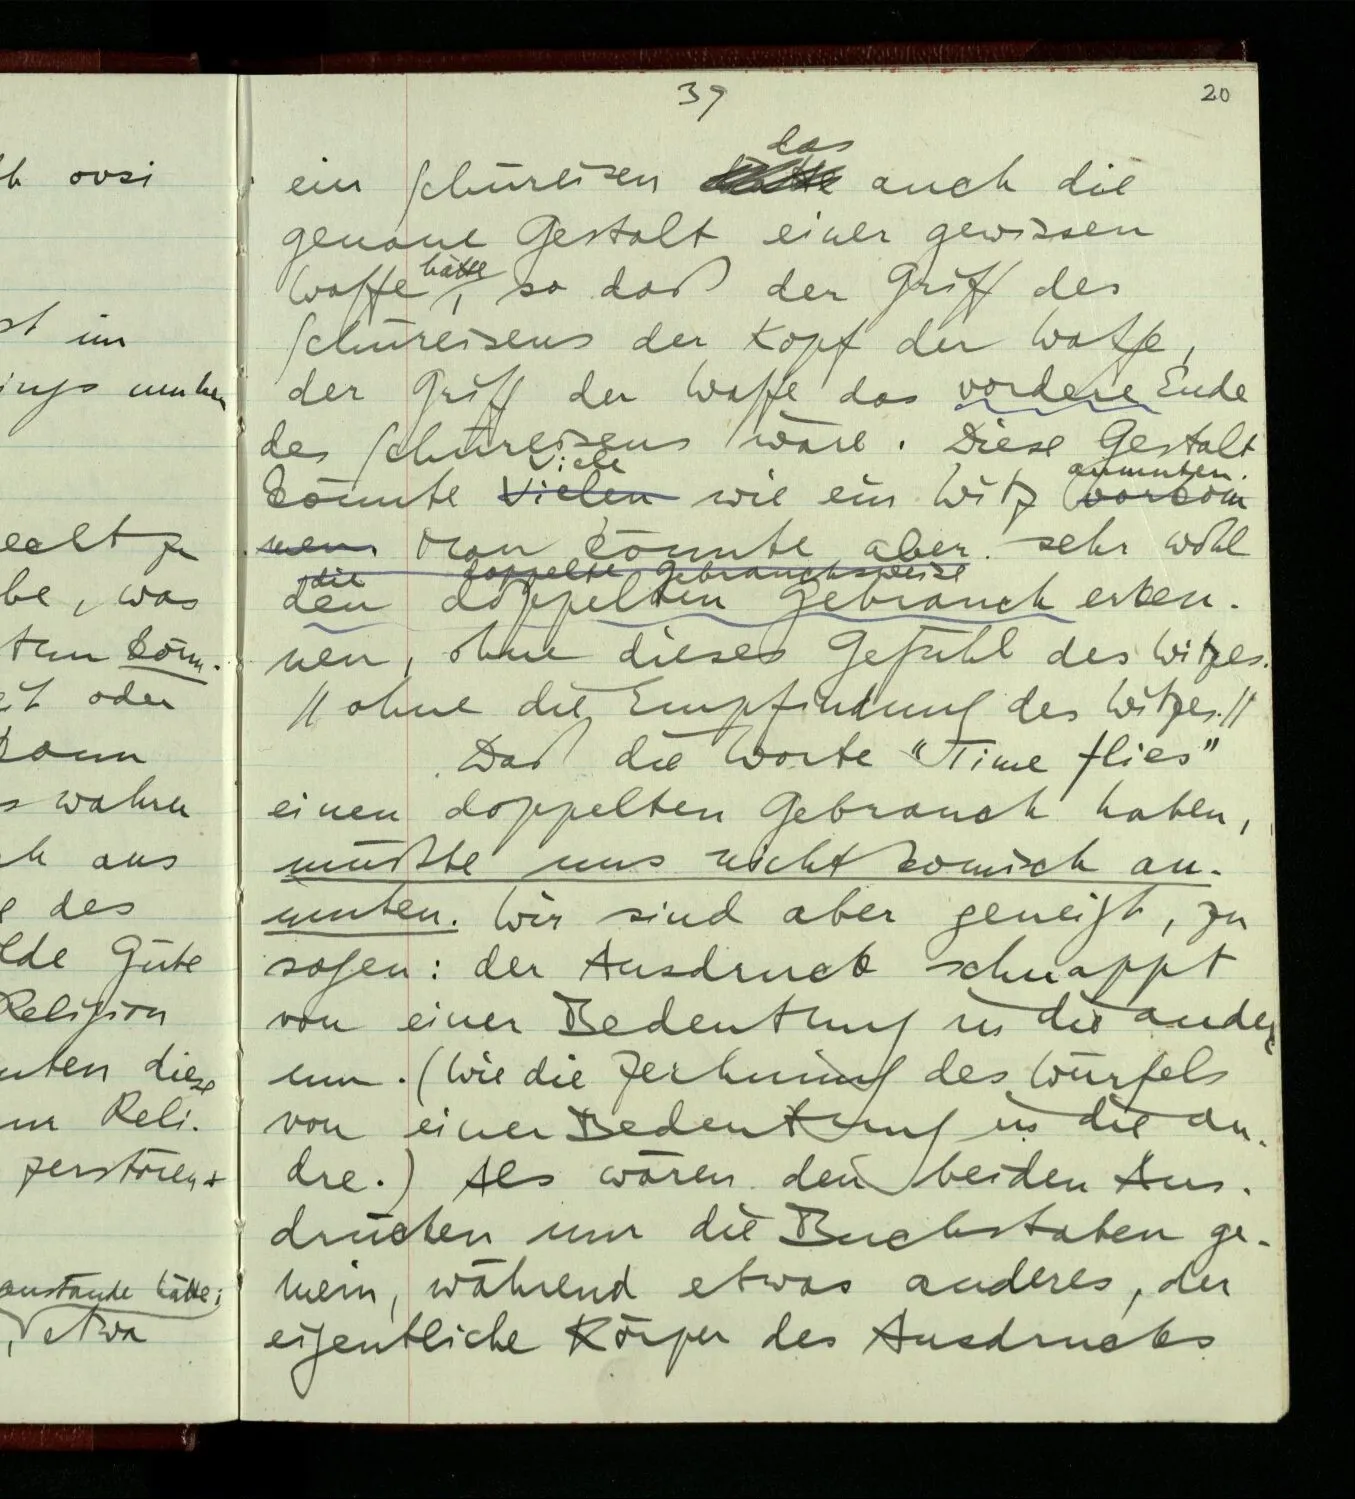 39
20
das
ein Schüreisen auch die
genaue Gestalt einer gewissen
hätte
Waffe, so daß der Griff des
Schüreisens der Kopf der Waffe,
der Griff der Waffe das vordere Ende
des Schüreisens wäre. Diese Gestalt
Viele anmuten.
könnte Vielen wie ein Witz vorkom
men. Man könnte aber sehr wohl
die doppelte Gebrauchsweise
den doppelten Gebrauch erken-
nen, ohne dieses Gefühl des Witzes.
// ohne die Empfindung des Witzes.//
Daß die Worte "Time flies"
einen doppelten Gebrauch haben,
müßte uns nicht komisch an-
muten. Wir sind aber geneigt, zu
sagen: der Ausdruck schnappt
von einer Bedeutung in die andere
um. (Wie die Zeichnung des Würfels
von einer Bedeutung in die an-
dre.) Als wären den beiden Aus-
drücken nur die Buchstaben ge-
mein, während etwas anderes, der
eigentliche Körper des Ausdrucks
st im
eelt zu
be, was
tun könn-
oder
kann
s wahren
aus
des
Güte
Religion
diese
Reli-
zerstören
hätte;
, etwa